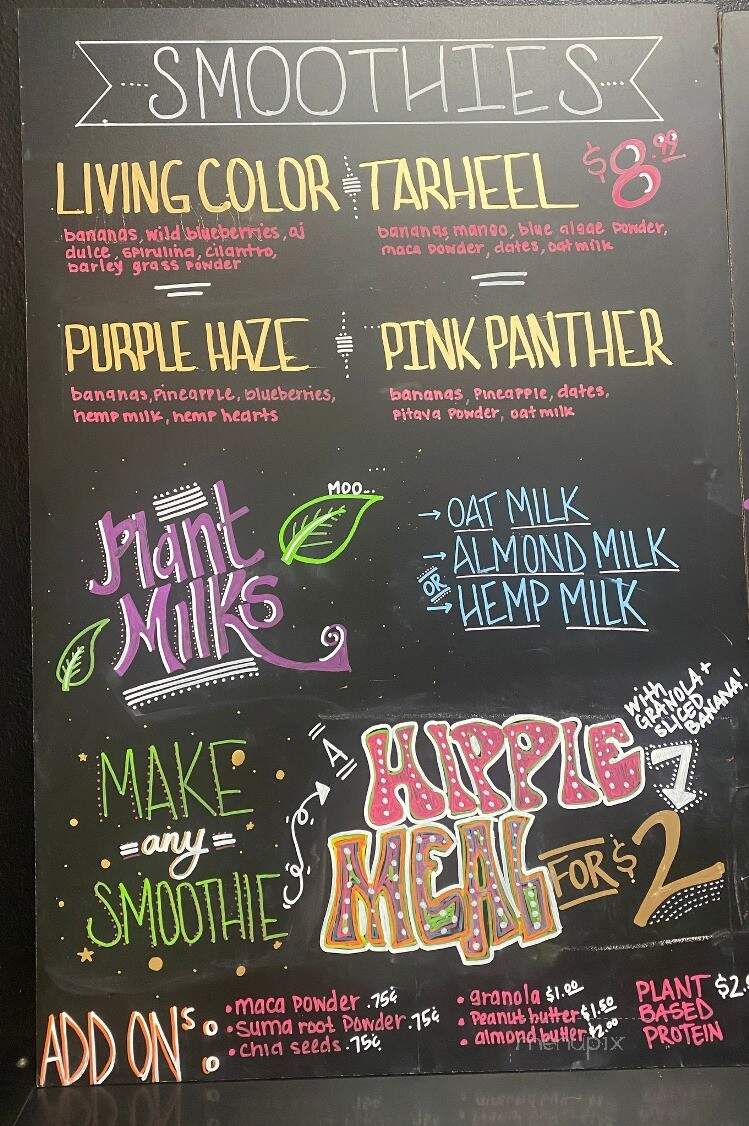 SMOOTHIES
LIVING COLOR
bananas, wild blueberries, aj
dulce, spirulina, cilantro,
barley grass powder
TARHEEL $8.99
bananas mango, blue algae powder,
maca powder, dates, oat milk
PURPLE HAZE
bananas, pineapple, blueberries,
hemp milk, hemp hearts
PINK PANTHER
bananas, pineapple, dates,
pitaya powder, oat milk
MOO...
Plant
Milks
→ OAT MILK
→ ALMOND MILK
OR
→ HEMP MILK
MAKE
=any=
SMOOTHIE
A
HIPPIE
MEAL
FOR $2
With
GRANOLA +
SLICED
BANANA!
ADD ONs:
• maca powder .75¢
• suma root powder .75¢
• chia seeds .75¢
• granola $1.00
• Peanut butter $1.50
• almond butter $2.00
PLANT
BASED
PROTEIN
menupix